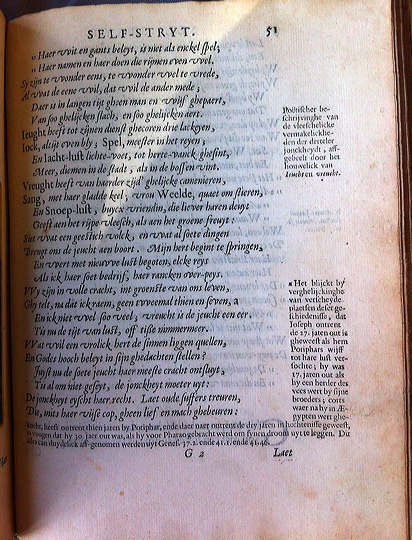 SELF-STRYT. 51
„ Haer wit en gants beleyt, is niet als enckel spel;
„ Haer namen en haer doen die rijmen even wel.
Sy zijn te wonder eens, te wonder wel te vrede,
Al wat de eene wil, dat wil de ander mede;
Daer is in langen tijt gheen man en wijf ghepaert,
Van soo ghelijcken slach, en soo ghelijcken aert.
Ieught heeft tot zijnen dienst ghecoren drie lackeyen,
Iock, altijt even bly; Spel, meester in het reyen;
En Iacht-lust lichte-voet, tot herte-vanck ghesint,
Meer, diemen in de stadt, als in de bossen vint.
Vreught heeft van haerder zijd' ghelijcke camenieren,
Sang, met haer gladde keel; vrou Weelde, quaet om stieren,
En Snoep-lust, buycx vriendin, die liever haren deyn
Geeft aen het rijpe vleesch, als aen het groene fruyt:
Siet wat een geestich volck, en wat al soete dingen
Brengt ons de jeucht aen boort. Mijn hert begint te springen,
En wort met nieuwe lust begoten, elcke reys
Als ick haer soet bedrijf, haer rancken over-peys.
Wy zijn in volle cracht, int groenste van ons leven,
Ghy telt, na dat ick raem, geen tweemael thien en seven, a
En ick niet veel soo veel; vreucht is de jeucht een eer.
Tis nu de tijt van lust, off tis nimmermeer.
Wat wil een vrolick hert de sinnen liggen quellen,
En Godes hooch beleyt in sijn ghedachten stellen?
Juyst nu de soete jeucht haer meeste cracht ontsluyt,
Tis al om niet geseyt, de jonckheyt moeter uyt:
De jonckheyt eyscht haer recht. Laet oude suffers treuren,
Die, mits haer wijse cop, gheen lief en mach ghebeuren:
Politischer be-
schrijvinghe van
de vleeschelicke
vermakelickhe-
den der derteler
jonckheydt, aff-
gebeelt door het
houwelick van
Ieucht en vreucht.
a Het blijckt by
verghelijckinghe
van verscheyde
plaetsen deser ge-
schiedenisse, dat
Joseph ontrent
de 17. jaren out is
gheweest als hem
Potiphars wijff
tot hare lust ver-
sochte; hy was
17. jaren out als
hy een herder des
vees wert by sijne
broeders; corts
waer na hy in Æ-
gypten wert ghe-
cocht, heeft ontrent thien jaren by Potiphar, ende daer naer ontrent de dry jaren in hechtenisse geweest,
in vougen dat hy 30. jaer out was, als hy voor Pharao gebracht werd om synen droom uyt te leggen. Dit
alles can duydelick aff-genomen werden uyt Genes. 37. 2. ende 41. 1. ende 41. 46.
G 2 Laet